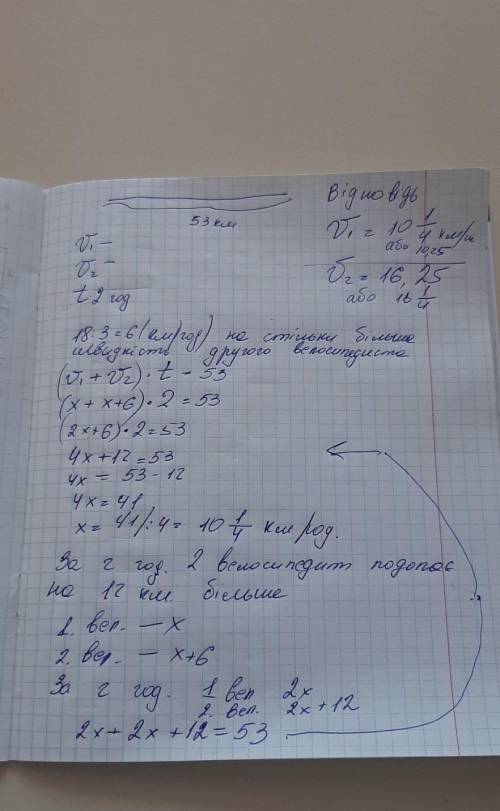 53 км
Відповідь
V₁ –
V₂ –
t 2 год
V₁ = 10 1/4 км/
або 10,25
V₂ = 16,25
або 16 1/4
18:3=6(км/год) на стільки більша
швидкість другого велосипедиста
(V₁ + V₂) · t – 53
(x + x+6) · 2 = 53
(2x+6) · 2 = 53
4x+12=53
4x = 53-12
4x = 41
x = 41/:4 = 10 1/4 км/год.
За 2 год. 2 велосипедит подопає
на 12 км. більше
1. вел. – x
2. вел. – x+6
За 2 год. 1 вел 2x
2. вел. 2x+12
2x+2x+12=53